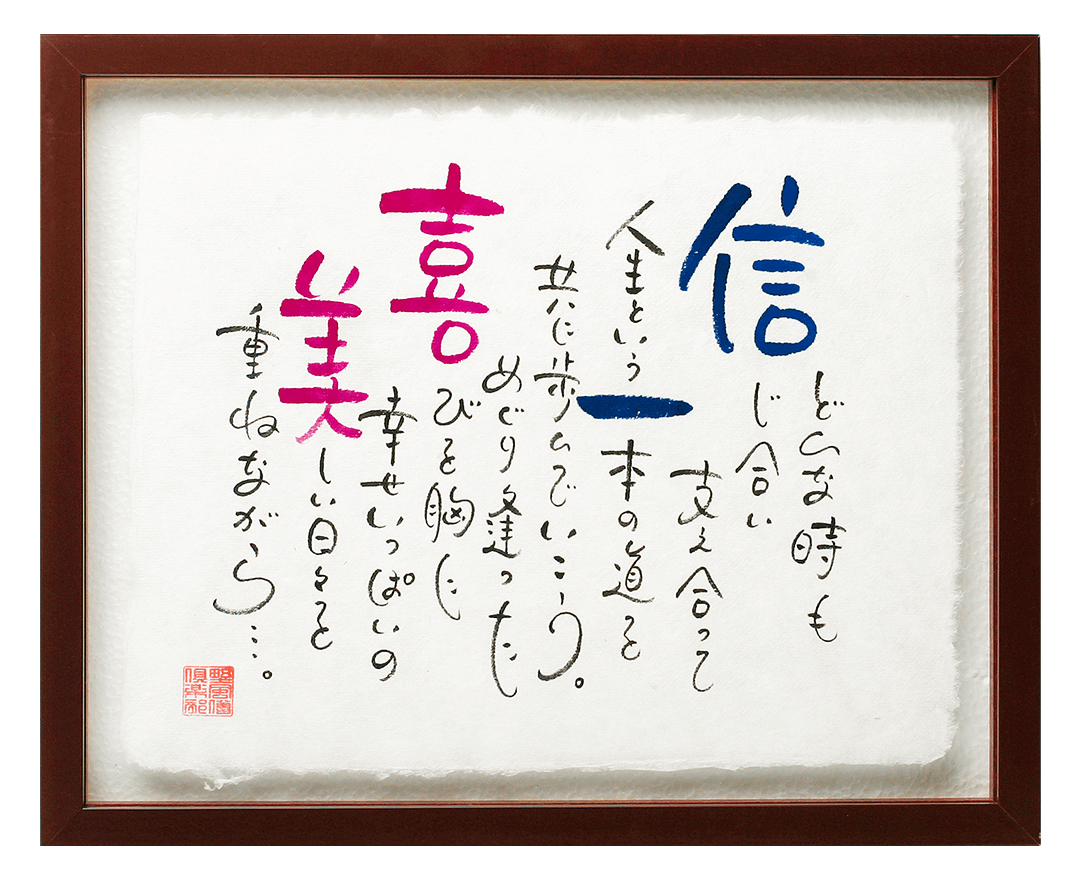 どんな時も
信じ合い
支え合って
人生という一本の道を
共に歩んでいこう。
めぐり逢った
喜びを胸に
幸せいっぱいの
美しい日々を
重ねながら…。
風僧
倶楽部